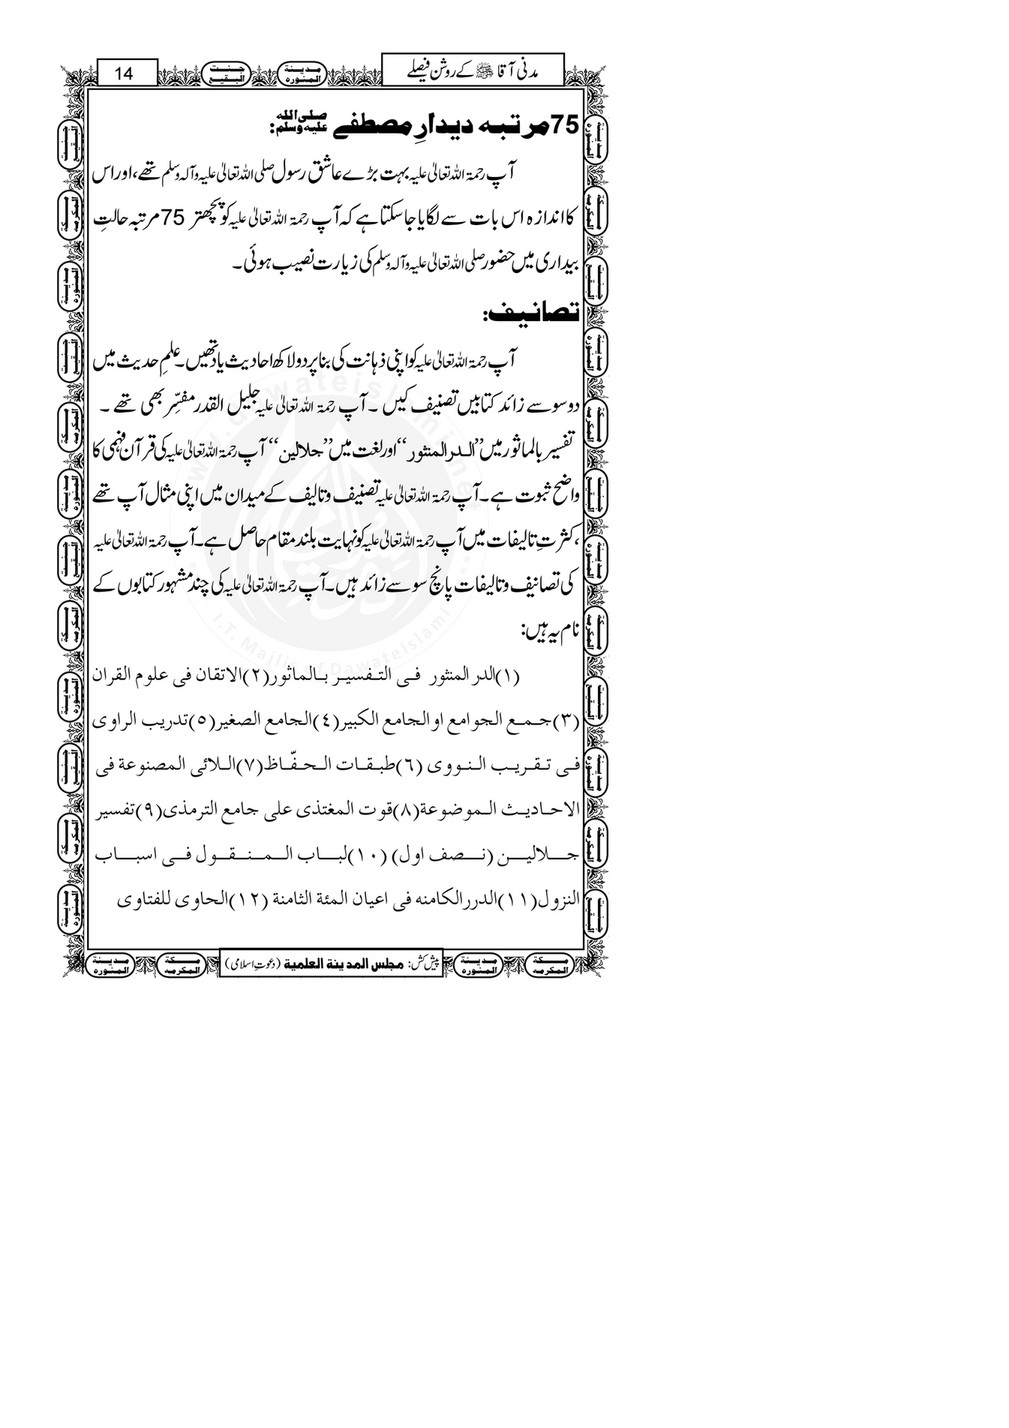 مدنی آقا ﷺ کے روشن فیصلے
14
75 مرتبہ دیدارِ مصطفٰے صلی اللہ علیہ وسلم:
آپ رحمۃ اللہ تعالیٰ علیہ بہت بڑے عاشق رسول صلی اللہ تعالیٰ علیہ وآلہ وسلم تھے، اور اس
کا اندازہ اس بات سے لگایا جا سکتا ہے کہ آپ رحمۃ اللہ تعالیٰ علیہ کو پچھتر 75 مرتبہ حالتِ
بیداری میں حضور صلی اللہ تعالیٰ علیہ وآلہ وسلم کی زیارت نصیب ہوئی ۔
تصانیف:
آپ رحمۃ اللہ تعالیٰ علیہ کو اپنی ذہانت کی بنا پر دو لاکھ احادیث یاد تھیں۔ علمِ حدیث میں
دو سو سے زائد کتابیں تصنیف کیں ۔ آپ رحمۃ اللہ تعالیٰ علیہ جلیل القدر مفسِّر بھی تھے ۔
تفسیر بالماثور میں ’’الدر المنثور‘‘ اور لغت میں ’’جلالین‘‘ آپ رحمۃ اللہ تعالیٰ علیہ کی قرآن فہمی کا
واضح ثبوت ہے۔ آپ رحمۃ اللہ تعالیٰ علیہ تصنیف و تالیف کے میدان میں اپنی مثال آپ تھے
، کثرتِ تالیفات میں آپ رحمۃ اللہ تعالیٰ علیہ کو نہایت بلند مقام حاصل ہے۔ آپ رحمۃ اللہ تعالیٰ علیہ
کی تصانیف و تالیفات پانچ سو سے زائد ہیں۔ آپ رحمۃ اللہ تعالیٰ علیہ کی چند مشہور کتابوں کے
نام یہ ہیں:
(۱) الدر المنثور فی التفسیر بالماثور (۲) الاتقان فی علوم القران
(۳) جمع الجوامع او الجامع الکبیر (٤) الجامع الصغیر (٥) تدریب الراوی
فی تقریب النووی (٦) طبقات الحفّاظ (۷) اللائی المصنوعة فی
الاحادیث الموضوعة (۸) قوت المغتذی علی جامع الترمذی (۹) تفسیر
جلالین (نصف اول) (۱۰) لباب المنقول فی اسباب
النزول (۱۱) الدرر الکامنه فی اعیان المئة الثامنة (۱۲) الحاوی للفتاوی
پیش کش: مجلس المدینة العلمیة (دعوتِ اسلامی)